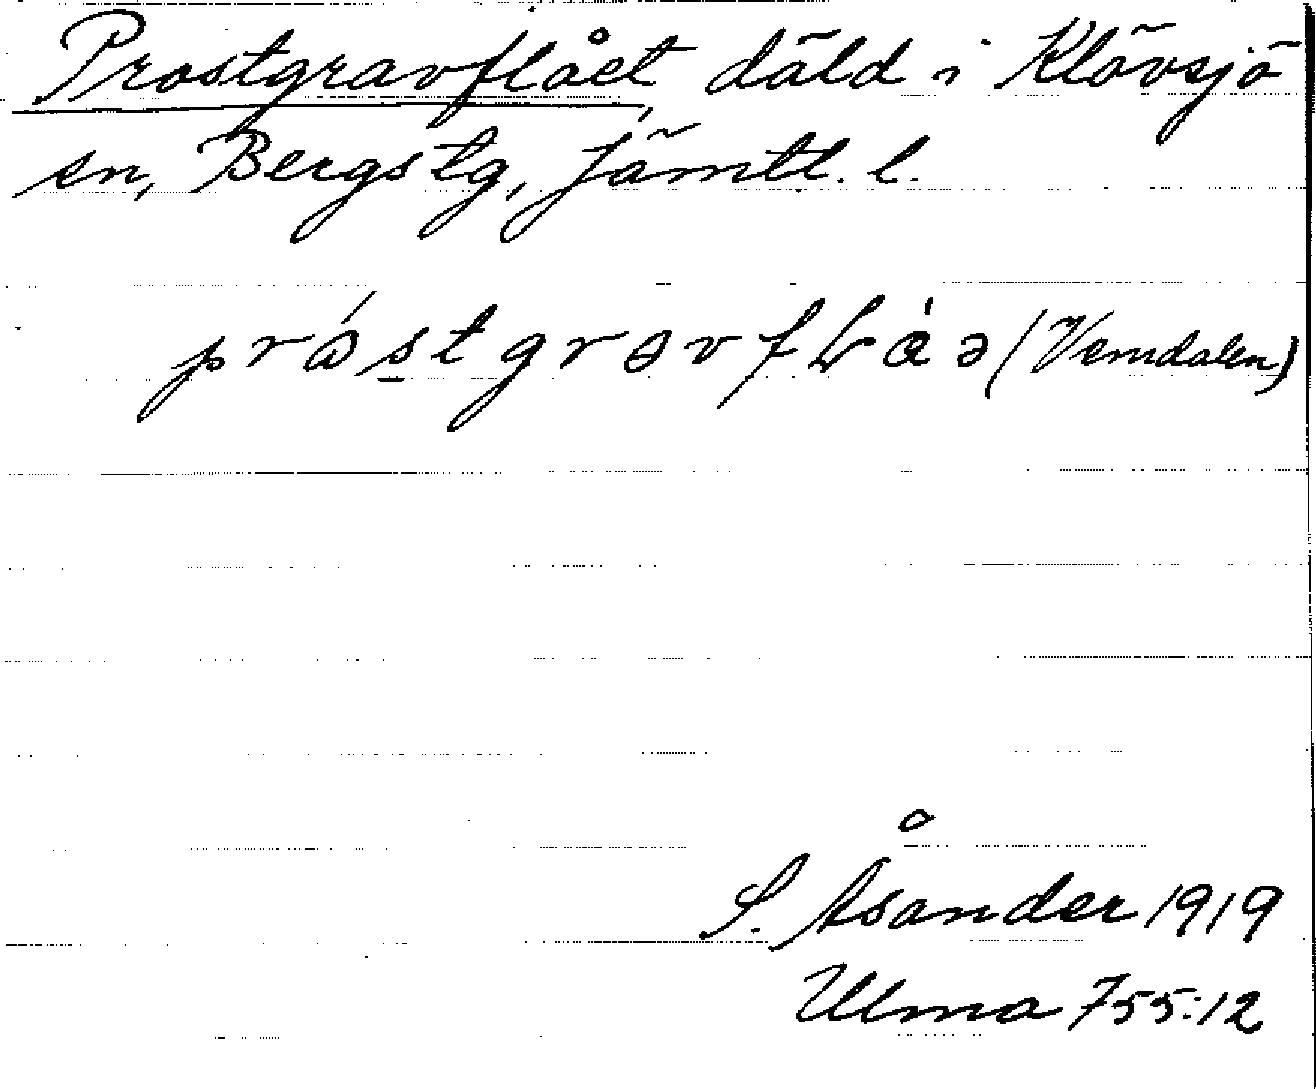 Prostgravflået, däld i Klövsjö
sn, Bergs tg, Jämtl. l.
próstgrɵvfⱢàə (Vemdalen)
S. Åsander 1919
Ulma 755:12